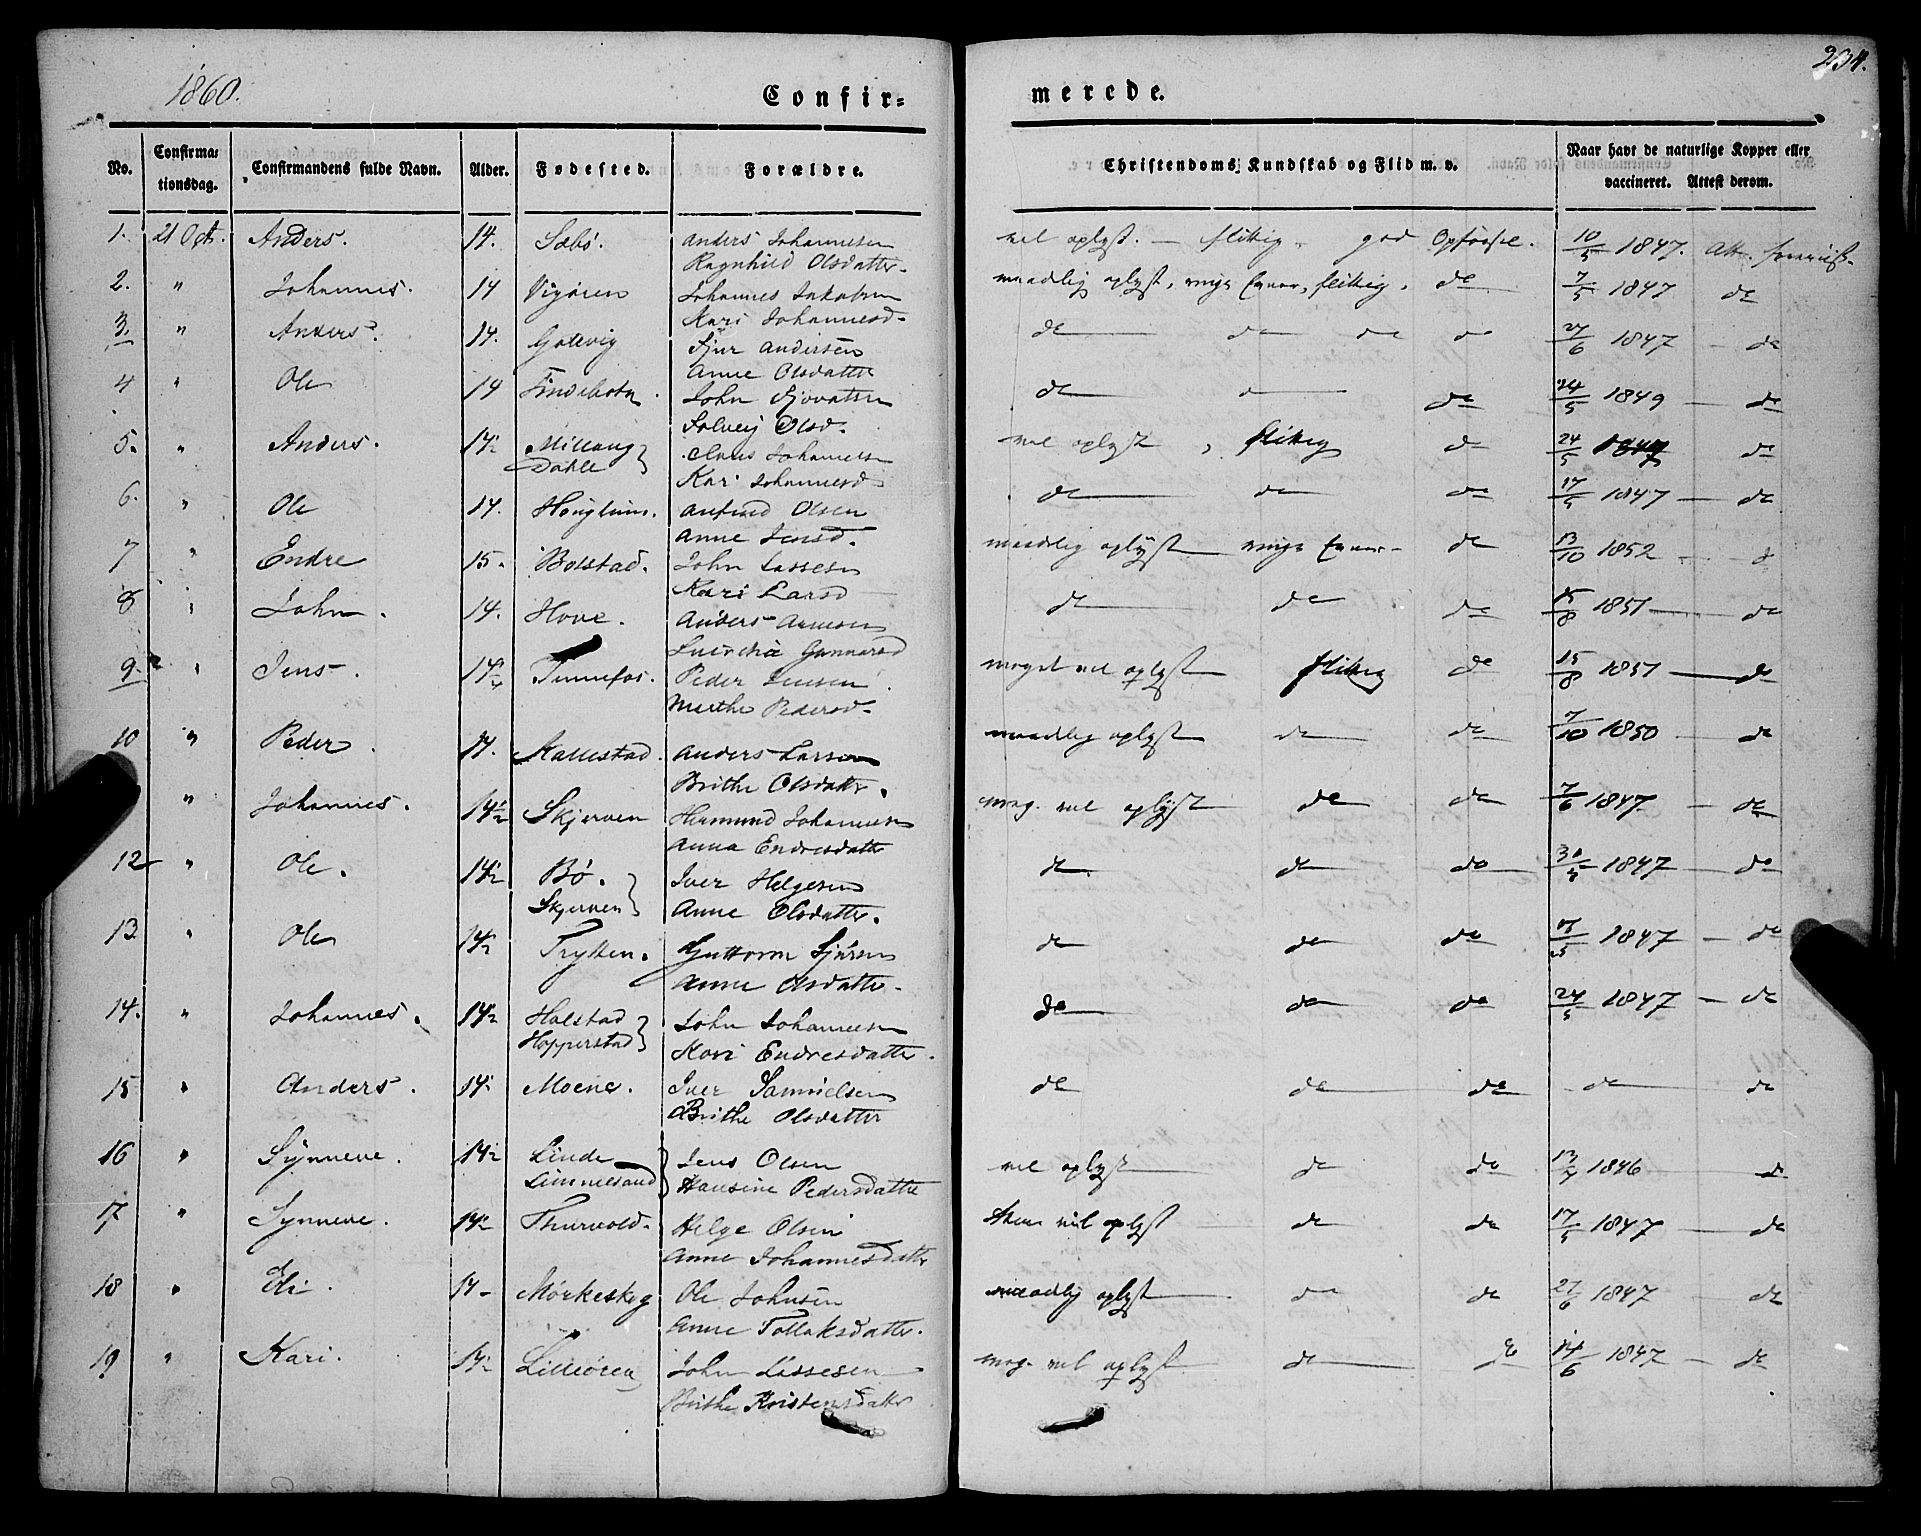 1860.
Confir-
merede.
234.
No.
Confirma-
tionsdag.
Confirmandens fulde Navn.
Alder.
Fødested.
Forældre.
Christendoms Kundskab og Flid m. v.
Naar havt de naturlige Kopper eller
vaccineret. Attest derom.
1. 21 Oct. Anders. 14. Sæbø. Anders Johannesen vel oplyst. — flittig. god Opførsel. 10/5 1847. Att.
Ragnhild Olsdatter.
2. " Johannes. 14 Vigøren Johannes Jakobsen maadelig oplyst, flittig. do 7/5 1847 do
Kari Johannesd.
3. " Anders. 14. Sjur Andersen do do do do 27/6 1847 — do
Anne Olsdatter
4 " Ole 14 Findebotn John do do do 24/5 1849 — do
Solveig Olsd.
5. " Anders. 14½ Dahle Johannesen vel oplyst, flittig do 24/5 1847 do
Kari Johannesd
6. " Ole 14. Anfind Olsen do do do 17/5 1847 — do
Anne Jensd.
7 " Endre 15. Bolstad. John Lassesen maadelig oplyst do 13/10 1852 — do
Kari Larsd
8 " John. 14. Hove. Anders do do do 15/8 1851 — do
9. " Jens. 14½ Tennefos. Peder Jensen meget vel oplyst flittig do 15/8 1851 — do
Marthe Pedersd.
10 " Peder. 14. Kallestad. Anders Larsen maadelig oplyst do do 7/10 1850 — do
Brithe Olsdatter.
" Johannes. 14½ Skjerven Hermund Johannesen meg. vel oplyst do do 7/6 1847 — do
Anna Endresdatter
12 " Ole. 14½ Bø. Iver Helgesen do. do do 30/5 1847 — do
Skjerven Anne Olsdatter.
13 " Ole 14½ Trytten. Guttorm Sjursen do do do 1847 — do
Anne Olsdatter.
14. " Johannes. 14½ Halstad John Johannesen do do do 24/5 1847 — do
Hopperstad Kari Endresdatter.
15 " Anders. 14½ Moene. Iver Samuelsen do do do do do
Brithe Olsdatter
16 " Synneve. 14½ Linde Jens Olsen vel oplyst do do 1846 do
Linnesand Hansine Pedersdatter
17 " Synneve. 14½ Thurvold. Helge Olsen vel oplyst do do 17/5 1847 — do
Anne Johannesdatter
18 " Eli. 14 Mørkeskog Ole Johnsen maadelig oplyst do do 27/6 1847 — do
Anne Tollaksdatter.
19 " Kari. 14½ Lilleøren John Lassesen meg. vel oplyst do do 14/6 1847 — do
Brithe Kristensdatter